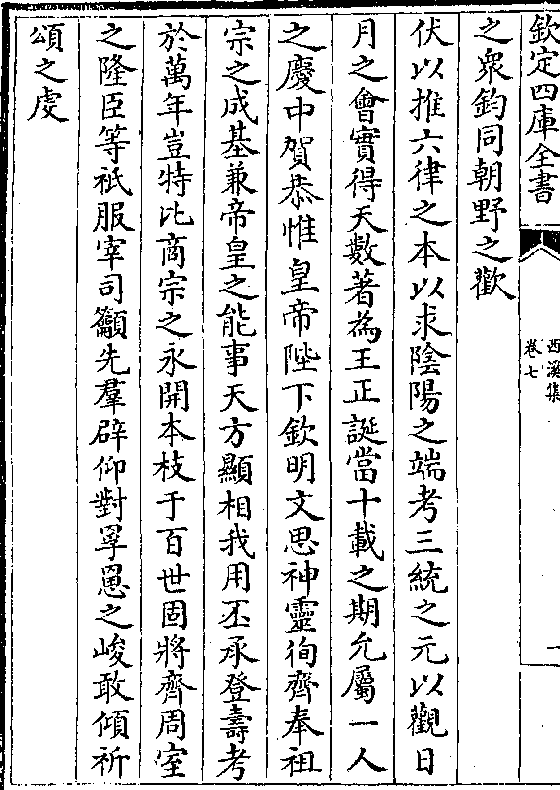 欽定四庫全書
西溪集
卷七
一
之衆鈞同朝野之歡
伏以推六律之本以求陰陽之端考三統之元以觀日
月之會實得天數著為王正誕當十載之期允屬一人
之慶中賀恭惟皇帝陛下欽明文思神靈徇齊奉祖
宗之成基兼帝皇之能事天方顯相我用丕承登壽考
於萬年豈特比商宗之永開本枝于百世固將齊周室
之隆臣等祇服宰司籲先羣辟仰對罦罳之峻敢傾祈
頌之虔